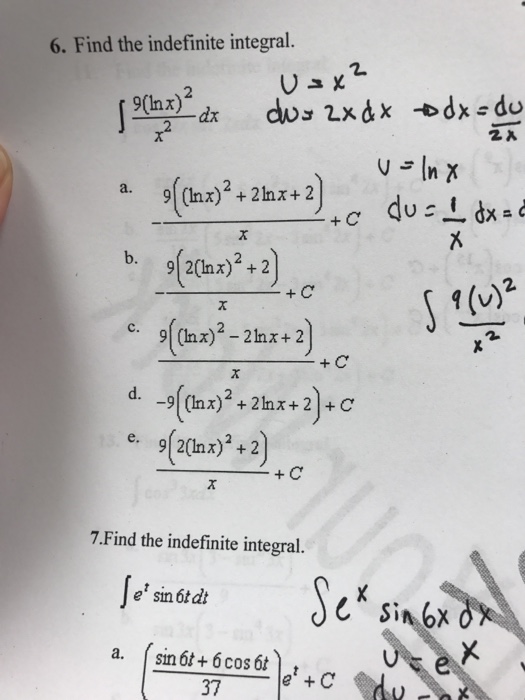 6. Find the indefinite integral.
U = x²
∫ 9(ln x)²/x² dx
du = 2x dx → dx = du/2x
U = ln x
a. -9((ln x)² + 2 ln x + 2)/x + C
du = 1/x dx =
b. -9(2(ln x)² + 2)/x + C
∫ 9(u)²/x²
c. 9((ln x)² - 2 ln x + 2)/x + C
d. -9((ln x)² + 2 ln x + 2) + C
e. 9(2(ln x)² + 2)/x + C
7.Find the indefinite integral.
∫ eᵗ sin 6t dt
∫ eˣ sin 6x dx
a. (sin 6t + 6 cos 6t / 37) eᵗ + C
U = eˣ
du = eˣ